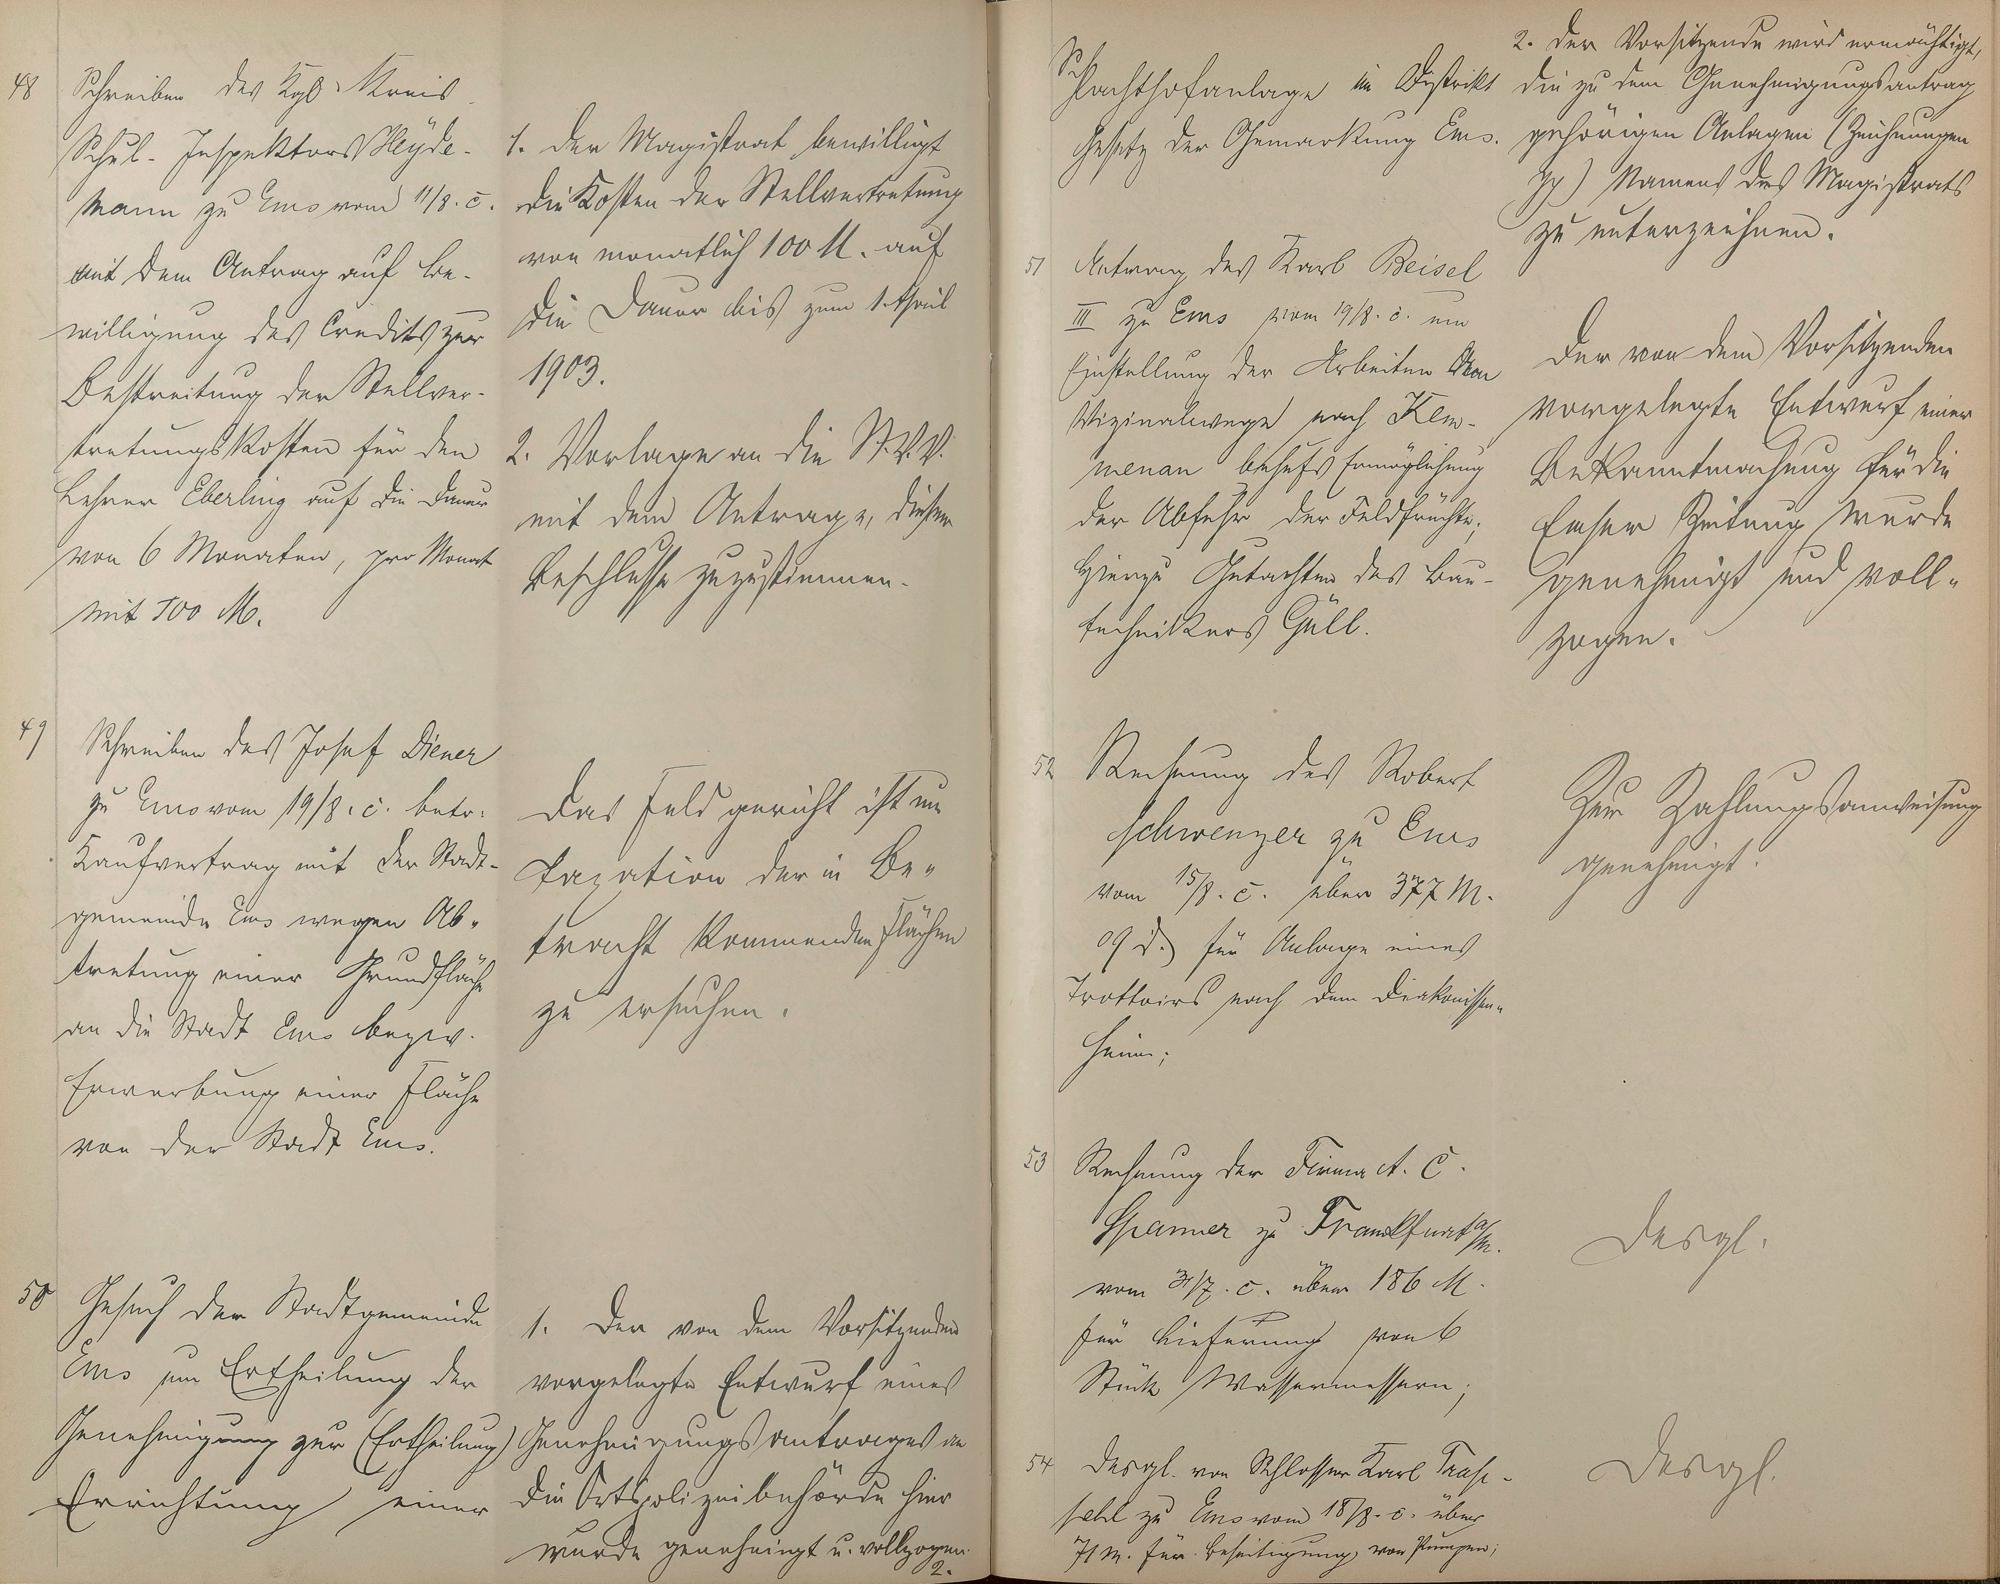 48
Schreiben des Kgl. Kreis
Schul-Inspektors Heyde-
mann zu Ems vom 11/8. c.
mit dem Antrag auf Be-
willigung des Credits zur
Bestreitung der Stellver-
tretungskosten für den
Lehrer Eberling auf die Dauer
von 6 Monaten, pro Monat
mit 100 M.
1. Der Magistrat bewilligt
die Kosten der Stellvertretung
von monatlich 100 M. auf
die Dauer bis zum 1. April
1903.
2. Vorlage an die St.V.V.
mit dem Antrage, diesem
Beschlusse zuzustimmen.
49
Schreiben des Josef Diener
zu Ems vom 19/8. c. betr.
Kaufvertrag mit der Stadt-
gemeinde Ems wegen Ab-
tretung einer Grundfläche
an die Stadt Ems bezw.
Erwerbung einer Fläche
von der Stadt Ems.
Das Feldgericht ist um
Taxation der in Be-
tracht kommenden Flächen
zu ersuchen.
50
Gesuch der Stadtgemeinde
Ems um Ertheilung der
Genehmigung zur (Ertheilung)
Errichtung einer
1. Der von dem Vorsitzenden
vorgelegte Entwurf eines
Genehmigungsantrages an
die Ortspolizeibehörde hier
wurde genehmigt u. vollzogen.
2.
Schlachthofanlage im Distrikt
der Gemarkung Ems.
2. Der Vorsitzende wird ermächtigt,
die zu dem Genehmigungsantrag
gehörigen Anlagen (Zeichnungen
pp) Namens des Magistrats
zu unterzeichnen.
51
Antrag des Karl Beisel
III zu Ems vom 19/8. c. um
Einstellung der Arbeiten am
Vizinalwege nach Kem-
menau behufs Ermöglichung
der Abfuhr der Feldfrüchte;
Hierzu Gutachten des Bau-
technikers Güll.
Der von dem Vorsitzenden
vorgelegte Entwurf einer
Bekanntmachung für die
Emser Zeitung wurde
genehmigt und voll-
zogen.
52
Rechnung des Robert
Schwenzer zu Ems
vom 15/8. c. über 377 M.
09 d. für Anlage eines
Trottoirs nach dem Diakonissen-
heim;
Zur Zahlungsanweisung
genehmigt.
53
Rechnung der Firma A. C.
Spanner zu Frankfurt a/M.
vom 31/7. c. über 186 M.
für Lieferung von 6
Stück Wassermessern;
Desgl.
54
Desgl. von Schlosser Karl
zu Ems vom 18/8. c. über
71 M. für Beseitigung von Pumpen;
Desgl.